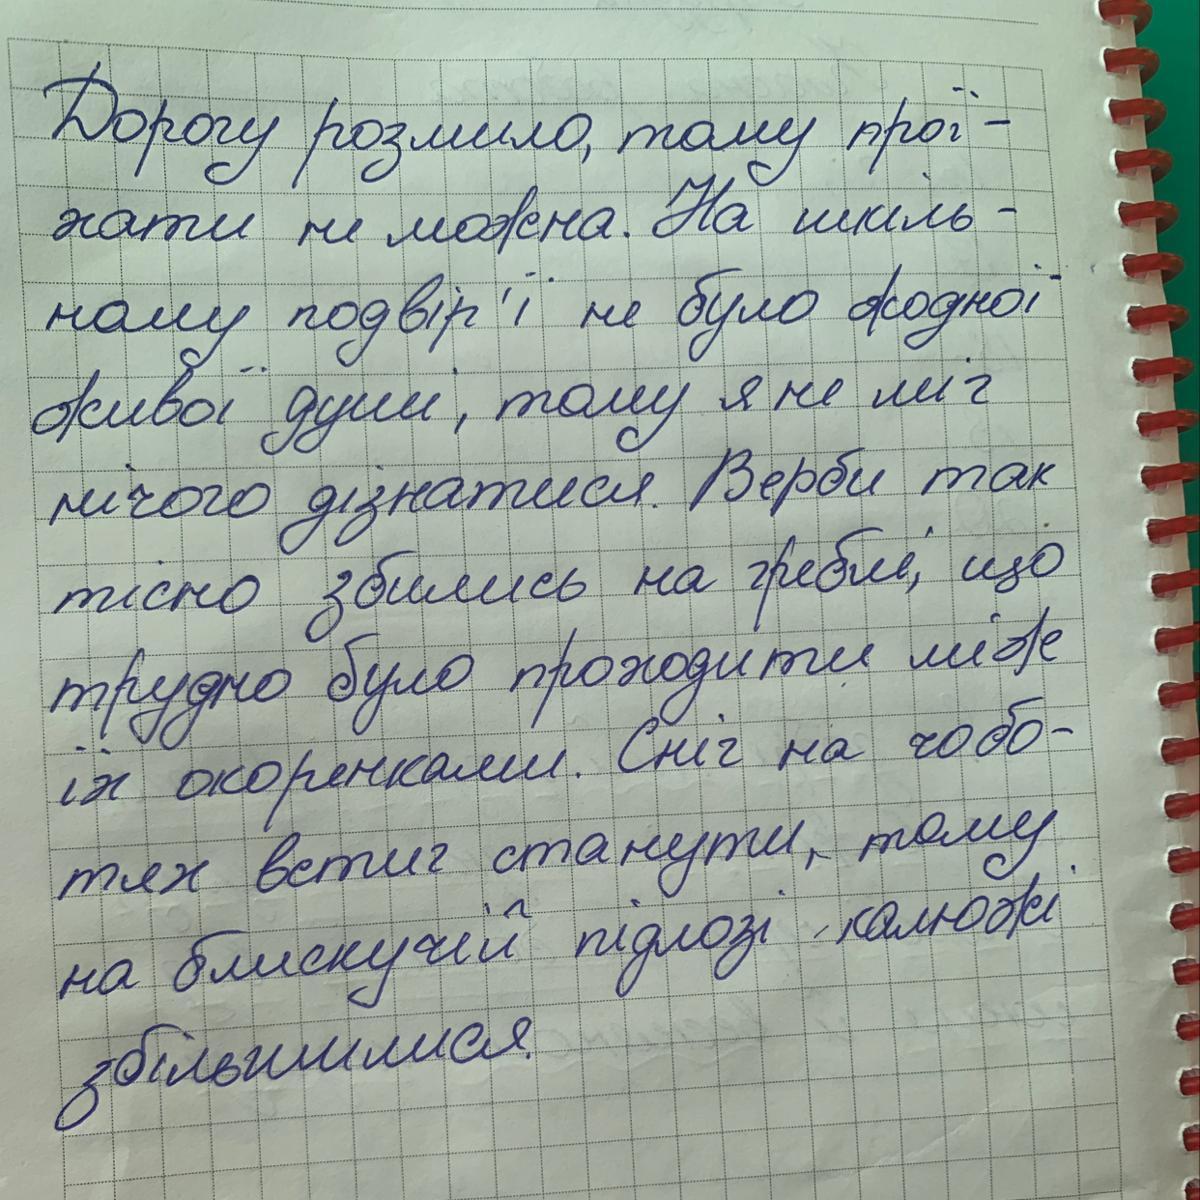 Дорогу розмило, тому прої-
хати не можна. На шкіль-
ному подвір'ї не було жодної
живої душі, тому я не міг
нічого дізнатися. Верби так
тісно збились на греблі, що
трудно було проходити між
їх окоренками. Сніг на чобо-
тях встиг станути, тому
на блискучій підлозі калюжі
збільшилися.